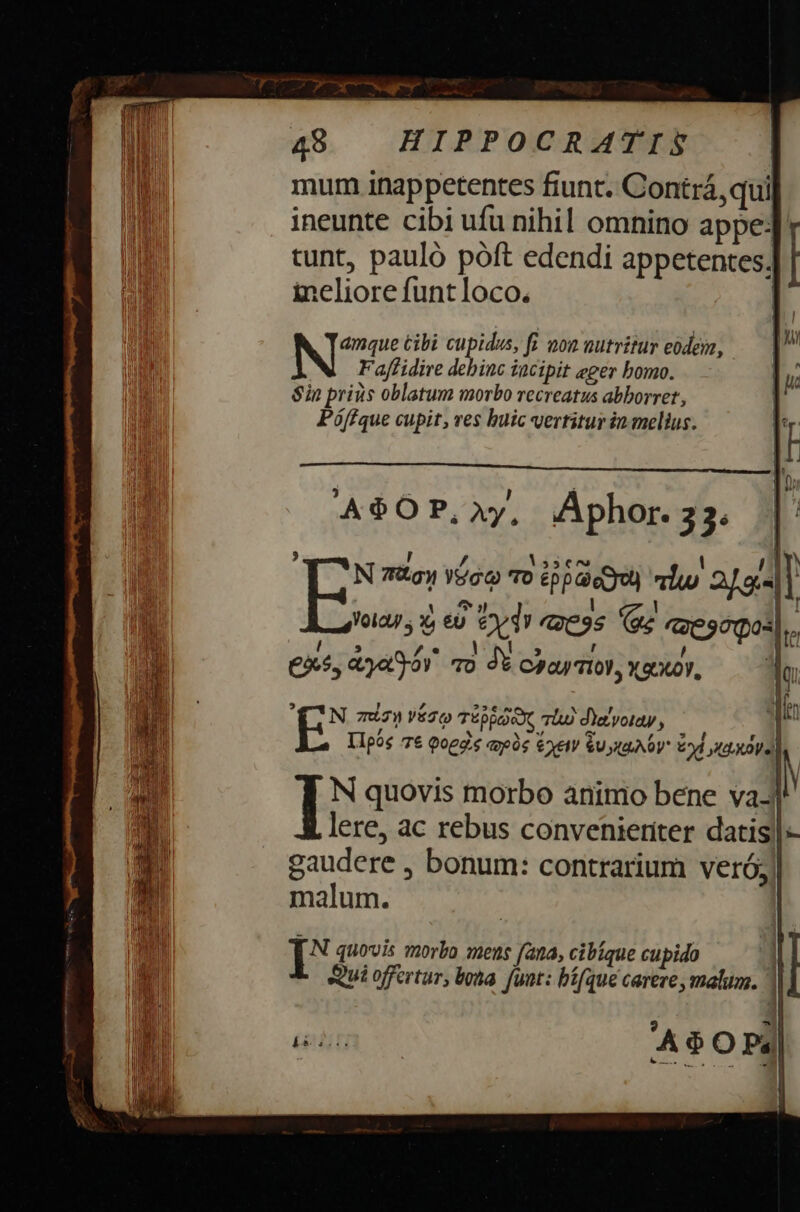 48 HIPPOCRATIS
mum inappetentes fiunt. Contrá, qui
ineunte cibi uſu nihil omnino appe-
tunt, paulò pòſt edendi appetentes,
meliore ſunt loco.
Namque cibi cupidus, ſi non nutritur eodem,
Faſtidire dehinc incipit æger homo.
Sin priùs oblatum morbo recreatus abhorret,
Póſtque cupit, res huic vertitur in melius.
ἈΦΟΡ. λγ. Aphor. 33.
ἘΝ πάσῃ νούσῳ τὸ ἐῤῥῶσθαι τὴν διά-
νοιαν, καὶ εὖ ἔχειν πρὸς τὰς προσφο-
ράς, ἀγαθόν· τὸ δὲ ἐναντίον, κακόν.
ἘΝ πάσῃ νούσῳ τ' ἐῤῥῶσθαι τὴν διάνοιαν,
Πρός τε φορὰς πρὸς ἔχειν εὖ, καλόν· οὐχὶ, κακόν.
IN quovis morbo animo bene va-
lere, ac rebus convenienter datis
gaudere, bonum: contrarium veró,
malum.
IN quovis morbo mens ſana, cibíque cupido
Qui offertur, bona ſunt: híſque carere, malum.
ἈΦΟΡ.